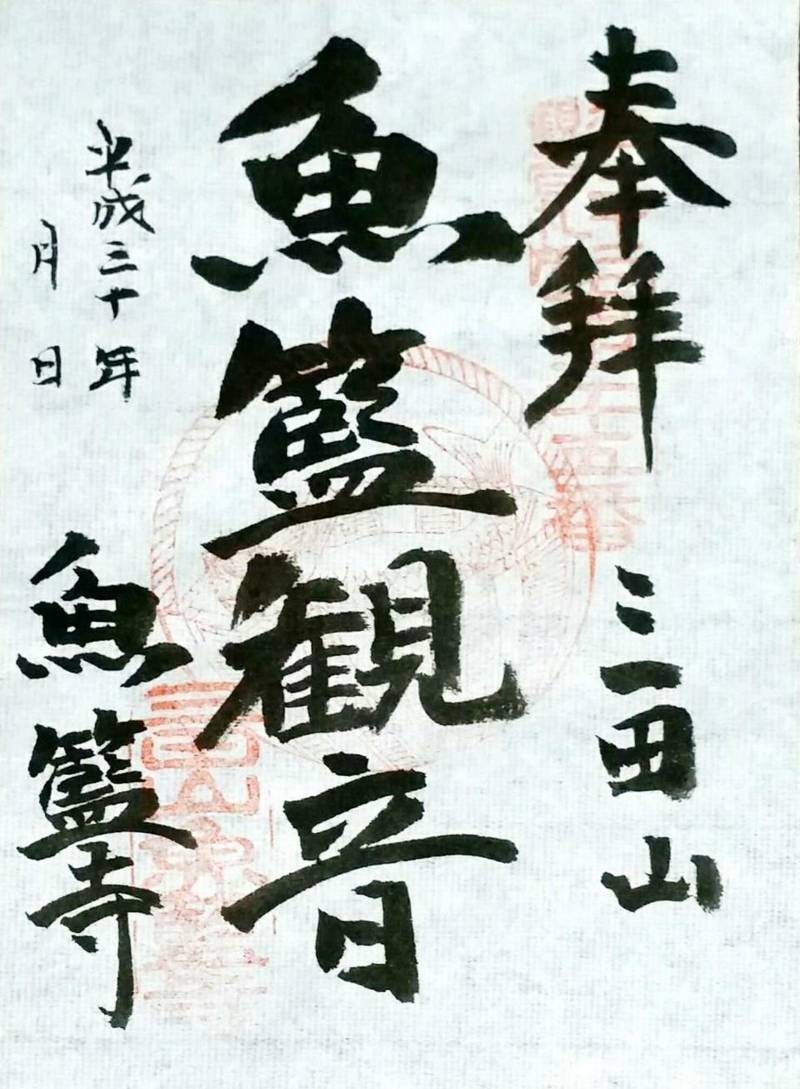 奉拝
三田山
魚籃観音
平成三十年
月 日
魚籃寺